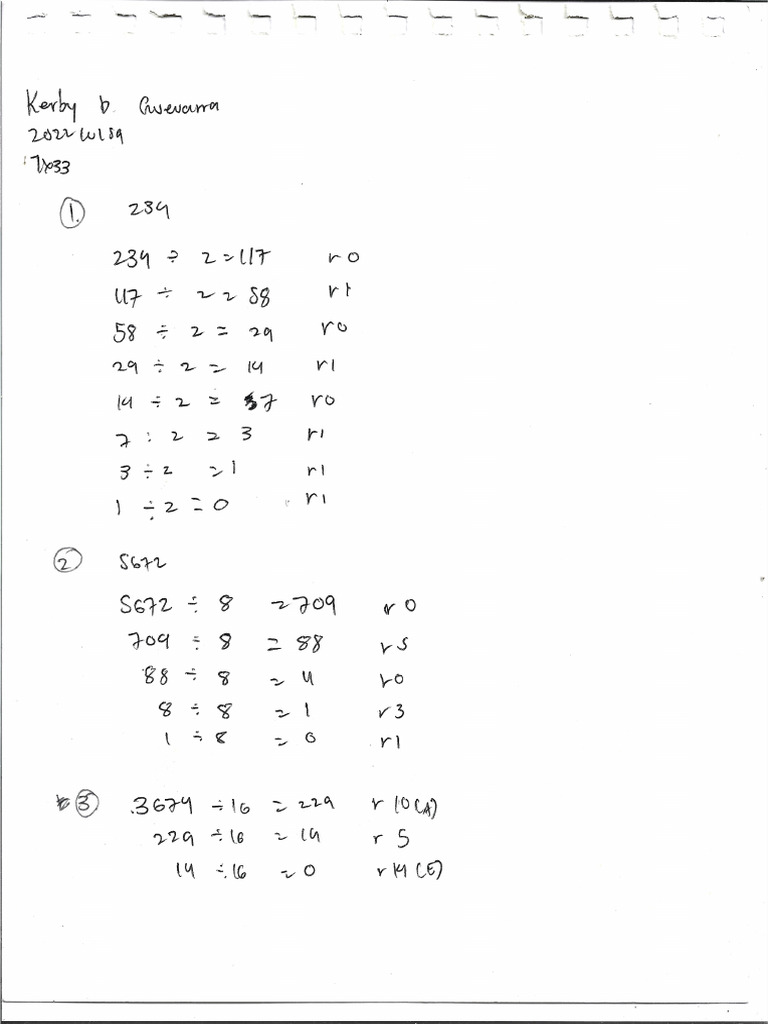 Kerby b. Guevarra
1.
234
234 ÷ 2 = 117 r 0
117 ÷ 2 = 58 r1
58 ÷ 2 = 29 r0
29 ÷ 2 = 14 r1
14 ÷ 2 = 7 r0
7 ÷ 2 = 3 r1
3 ÷ 2 = 1 r1
1 ÷ 2 = 0 r1
2
5672
5672 ÷ 8 = 709 r 0
709 ÷ 8 = 88 r5
88 ÷ 8 = 11 r0
8 ÷ 8 = 1 r3
1 ÷ 8 = 0 r1
3 3674 ÷ 16 = 229 r 10 (A)
229 ÷ 16 = 14 r 5
14 ÷ 16 = 0 r 14 (E)